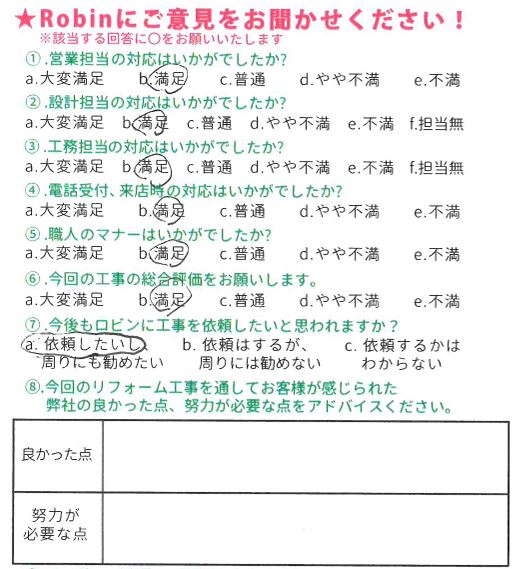 ★Robinにご意見をお聞かせください！
※該当する回答に〇をお願いいたします
①.営業担当の対応はいかがでしたか?
a.大変満足 b.満足 c.普通 d.やや不満 e.不満
②.設計担当の対応はいかがでしたか?
a.大変満足 b.満足 c.普通 d.やや不満 e.不満 f.担当無
③.工務担当の対応はいかがでしたか?
a.大変満足 b.満足 c.普通 d.やや不満 e.不満 f.担当無
④.電話受付、来店時の対応はいかがでしたか?
a.大変満足 b.満足 c.普通 d.やや不満 e.不満
⑤.職人のマナーはいかがでしたか?
a.大変満足 b.満足 c.普通 d.やや不満 e.不満
⑥.今回の工事の総合評価をお願いします。
a.大変満足 b.満足 c.普通 d.やや不満 e.不満
⑦.今後もロビンに工事を依頼したいと思われますか？
a. 依頼したいし b. 依頼はするが、 c. 依頼するかは
周りにも勧めたい 周りには勧めない わからない
⑧.今回のリフォーム工事を通してお客様が感じられた
弊社の良かった点、努力が必要な点をアドバイスください。
良かった点
努力が
必要な点